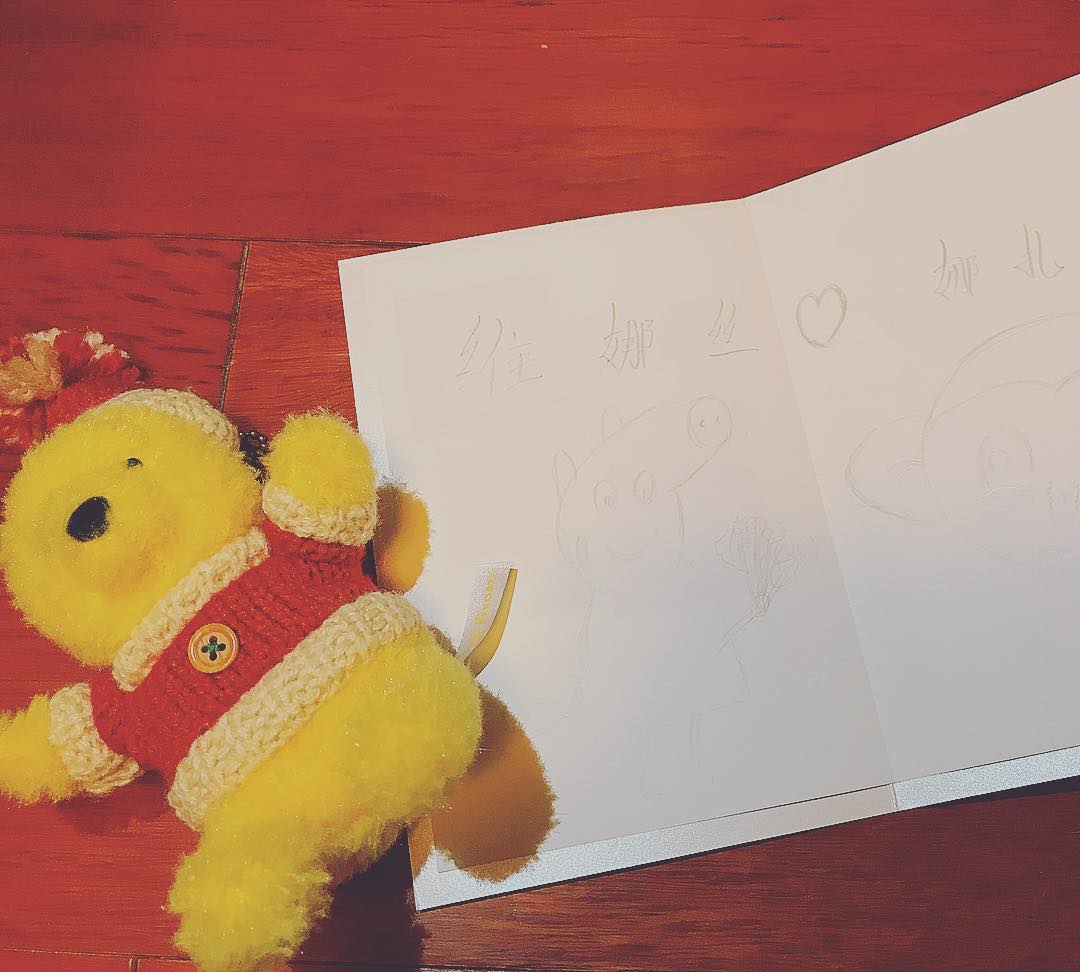 维娜丝♡娜扎